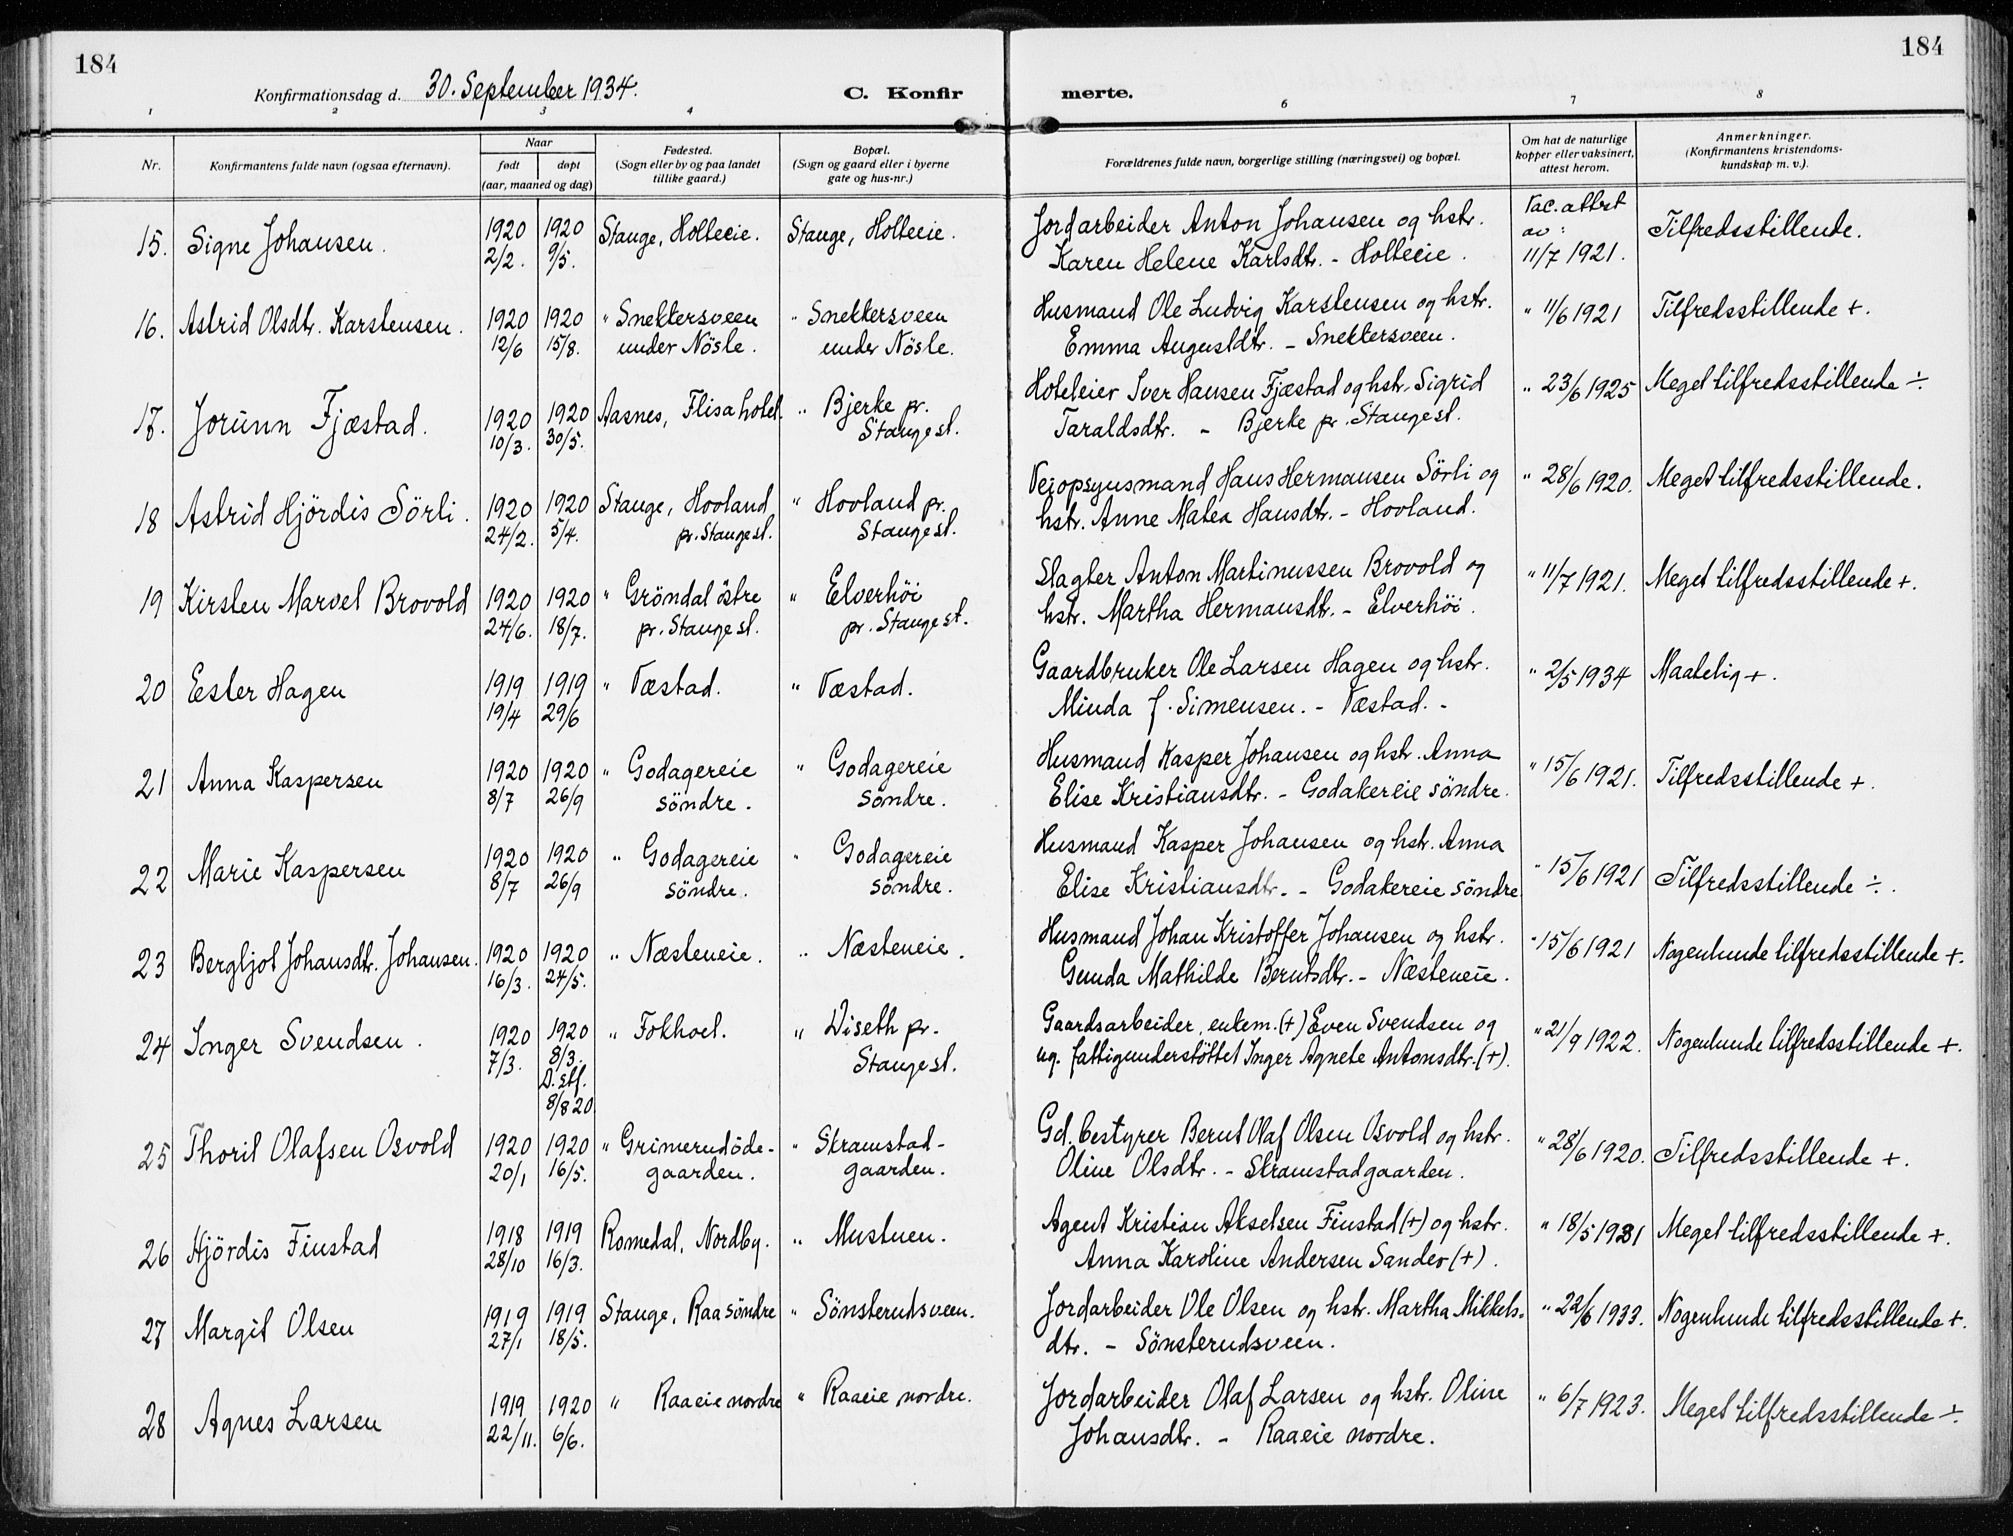 184
184
Konfirmationsdag d. 30. September 1934.
C. Konfir
merte.
1 2 3 4 6 7 8
Nr.
Konfirmantens fulde navn (ogsaa efternavn).
Naar
født
døpt
(aar, maaned og dag)
Fødested.
(Sogn eller by og paa landet
tillike gaard.)
Bopæl.
(Sogn og gaard eller i byerne
gate og hus-nr.)
Forældrenes fulde navn, borgerlige stilling (næringsvei) og bopæl.
Om hat de naturlige
kopper eller vaksinert,
attest herom.
Anmerkninger.
(Konfirmantens kristendoms-
kundskap m. v.).
15. Signe Johansen. 1920 1920 Stange, Holteeie. Stange, Holteeie. Jordarbeider Anton Johansen og hstr. Vac. attest av: Tilfredsstillende.
2/2. 9/5. Karen Helene Karlsdtr. - Holteeie. 11/7 1921.
16. Astrid Olsdtr. Karstensen. 1920 1920 " Snekkersveen " Snekkersveen Husmand Ole Ludvig Karstensen og hstr. " 11/6 1921 Tilfredsstillende +.
12/6 15/8. under Nösle. under Nösle. Emma Augustdtr. - Snekkersveen.
17. Jorunn Fjæstad. 1920 1920 Aasnes, Flisa hotel. " Bjerke pr. Hoteleier Iver Hansen Fjæstad og hstr. Sigrid " 23/6 1925 Meget tilfredsstillende ÷.
10/3. 30/5. Stange st. Taraldsdtr. - Bjerke pr. Stange st.
18 Astrid Hjördis Sörli. 1920 1920 Stange, Hovland " Hovland pr. Veiopsynsmand Hans Hermansen Sörli og " 28/6 1920. Meget tilfredsstillende.
24/2. 5/4. pr. Stange st. Stange st. hstr. Anne Matea Hansdtr. - Hovland.
19 Kirsten Marvel Brovold 1920 1920 " Gröndal östre " Elverhöi Slagter Anton Martinussen Brovold og " 11/7 1921. Meget tilfredsstillende +.
24/6. 18/7. pr. Stange st. pr. Stange st. hstr. Martha Hermansdtr. - Elverhöi.
20 Ester Hagen 1919 1919 " Væstad. " Væstad. Gaardbruker Ole Larsen Hagen og hstr. " 2/5 1934 Maatelig +.
19/4 29/6 Minda f. Simensen. - Væstad. -
21 Anna Kaspersen 1920 1920 " Godagereie " Godagereie Husmand Kasper Johansen og hstr. Anna " 15/6 1921. Tilfredsstillende +.
8/7 26/9 söndre. söndre. Elise Kristiansdtr. - Godakereie söndre.
22 Marie Kaspersen 1920 1920 " Godagereie " Godagereie Husmand Kasper Johansen og hstr. Anna " 15/6 1921 Tilfredsstillende ÷.
8/7 26/9 söndre. söndre. Elise Kristiansdtr. - Godakereie söndre
23 Bergljot Johansdtr. Johansen. 1920 1920 " Næsteneie. " Næsteneie. Husmand Johan Kristoffer Johansen og hstr. " 15/6 1921 Nogenlunde tilfredsstillende +.
16/3. 24/5. Gunda Mathilde Berntsdtr. - Næsteneie.
24 Inger Svendsen. 1920 1920 " Fokhoel. " Diseth pr. Gaardsarbeider, enkem. (+) Even Svendsen og " 21/9 1922. Nogenlunde tilfredsstillende +.
7/3. 8/3. Stange st. ug. fattigunderstöttet Inger Agnete Antonsdtr. (+).
D. stf.
8/8 20
25 Thoril Olafsen Osvold 1920 1920 " Grimerudöde- " Skramstad- Gd. bestyrer Bernt Olaf Olsen Osvold og hstr. " 28/6 1920. Tilfredsstillende +.
20/1 16/5. gaarden. gaarden. Oline Olsdtr. - Skramstadgaarden.
26 Hjördis Finstad 1918 1919 Romedal, Nordby. " Mustuen. Agent Kristian Akselsen Finstad (+) og hstr. " 18/5 1931 Meget tilfredsstillende +.
28/10 16/3. Anna Karoline Andersen Sander (+).
27 Margit Olsen 1919 1919 Stange, Raa söndre " Sönsterudsveen. Jordarbeider Ole Olsen og hstr. Martha Mikkels- " 22/6 1933. Nogenlunde tilfredsstillende +.
27/1 18/5. dtr. - Sönsterudsveen.
28 Agnes Larsen 1919 1920 " Raaeie nordre " Raaeie nordre. Jordarbeider Olaf Larsen og hstr. Oline " 6/7 1923. Meget tilfredsstillende ÷.
22/11. 6/6. Johansdtr. - Raaeie nordre.